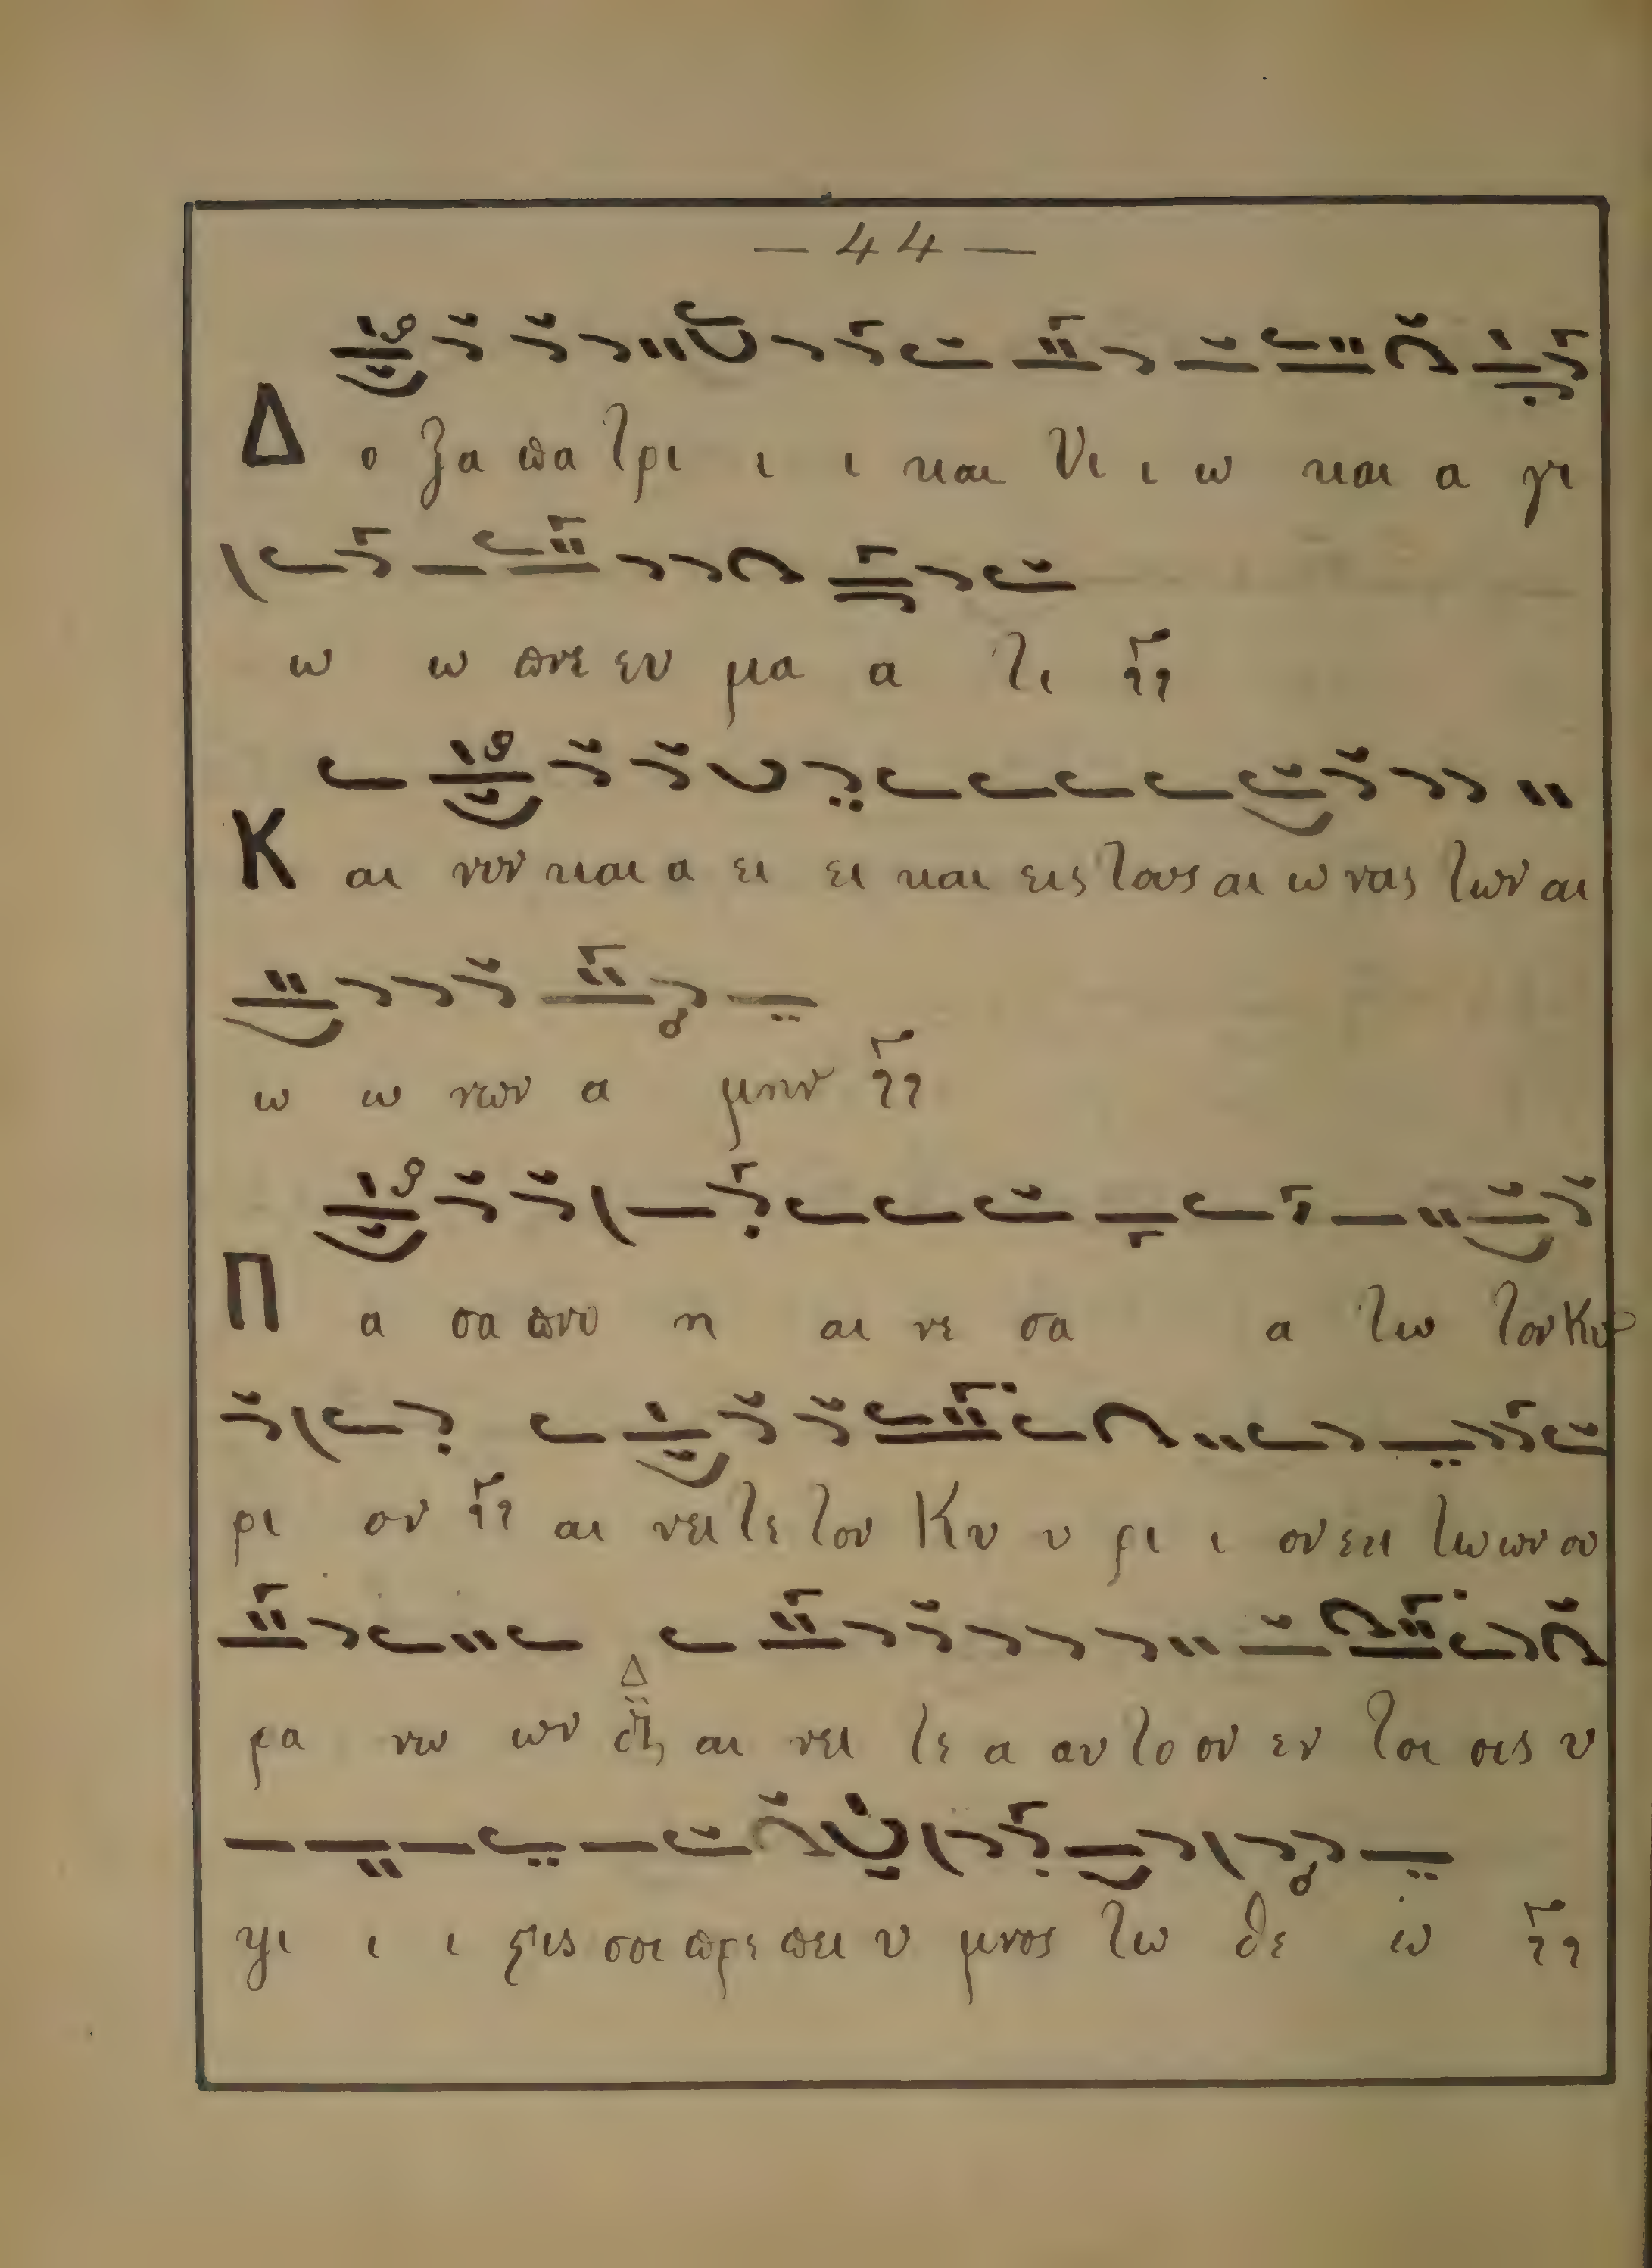 — 44 —
Δ ο ξα πα τρι ι ι και Υι ι ω και α γι
ω ω πνε ευ μα α τι
Κ αι νυν και α ει ει και εις τους αι ω νας των αι
ω ω νων α μην
Π α σα πνο η αι νε σα α τω τον Κυ
ρι ον αι νει τε τον Κυ υ ρι ι ον εκ των ου
ρα νω ων Δ αι νει τε α αυ το ον εν τοι οις υ
ψι ι ι στοις σοι πρε πει υ μνος τω Θε ω